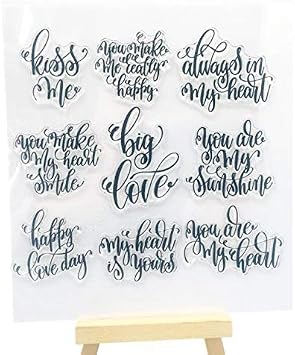 kiss
me
you make
me really
happy
always in
my heart
you make
my heart
smile
big
love
you are
my
sunshine
happy
love day
my heart
is yours
you are
my heart